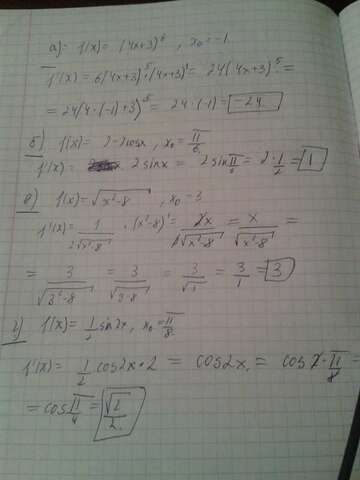 а) f(x) = (4x+3)⁶ , x₀ = -1.
f'(x) = 6(4x+3)⁵·(4x+3)' = 24(4x+3)⁵ =
= 24(4·(-1)+3)⁵ = 24·(-1) = -24.
б) f(x) = 2-2cosx, x₀ = π/6
f'(x) = 2sinx = 2sin π/6 = 2·1/2 = 1
в) f(x) = √(x²-8) , x₀ = 3
f'(x) = 1/(2√(x²-8)) · (x²-8)' = 2x/(2√(x²-8)) = x/√(x²-8) =
= 3/√(3²-8) = 3/√(9-8) = 3/√1 = 3/1 = 3
г) f(x) = 1/2 sin2x, x₀ = π/8
f'(x) = 1/2 cos2x·2 = cos2x = cos2·π/8 =
= cos π/4 = √2/2.